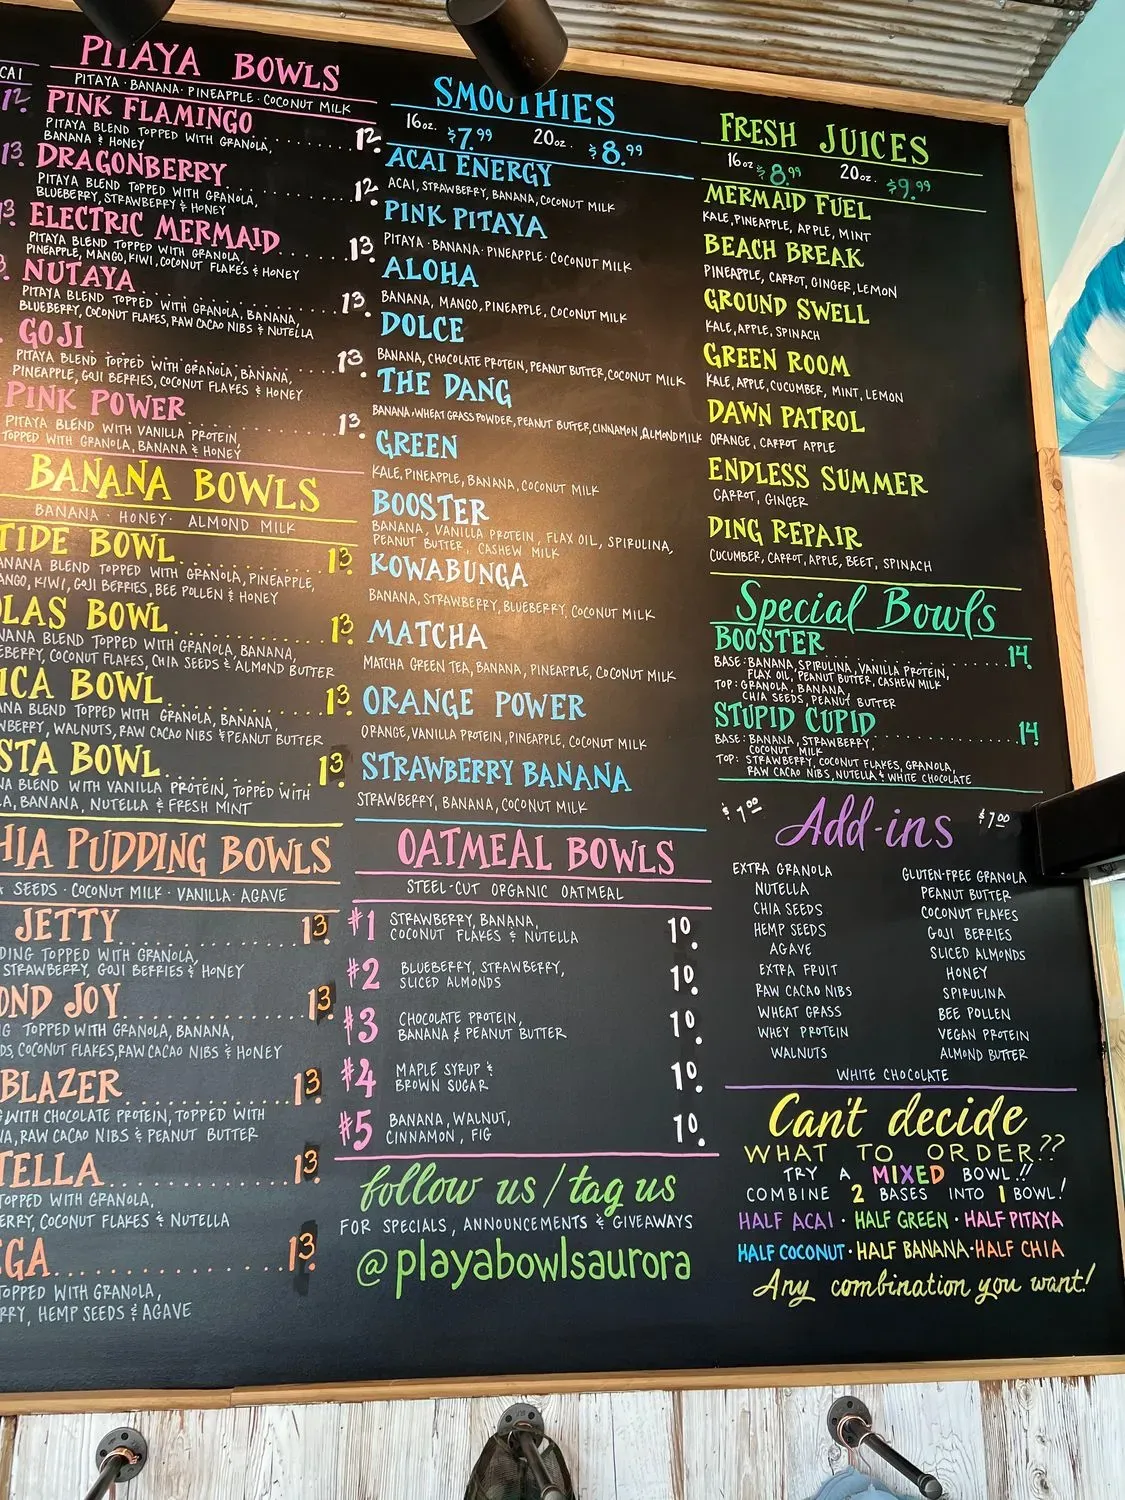 CAI
12.
13.
13
PITAYA BOWLS
PITAYA · BANANA · PINEAPPLE · COCONUT MILK
PINK FLAMINGO........12.
PITAYA BLEND TOPPED WITH GRANOLA,
BANANA & HONEY
DRAGONBERRY........12.
PITAYA BLEND TOPPED WITH GRANOLA,
BLUEBERRY, STRAWBERRY & HONEY
ELECTRIC MERMAID........13.
PITAYA BLEND TOPPED WITH GRANOLA,
PINEAPPLE, MANGO, KIWI, COCONUT FLAKES & HONEY
NUTAYA........13.
PITAYA BLEND TOPPED WITH GRANOLA, BANANA,
BLUEBERRY, COCONUT FLAKES, RAW CACAO NIBS & NUTELLA
GOJI........13.
PITAYA BLEND TOPPED WITH GRANOLA, BANANA,
PINEAPPLE, GOJI BERRIES, COCONUT FLAKES & HONEY
PINK POWER........13.
PITAYA BLEND WITH VANILLA PROTEIN,
TOPPED WITH GRANOLA, BANANA & HONEY
BANANA BOWLS
BANANA · HONEY · ALMOND MILK
TIDE BOWL........13.
ANANA BLEND TOPPED WITH GRANOLA, PINEAPPLE,
ANGO, KIWI, GOJI BERRIES, BEE POLLEN & HONEY
LAS BOWL........13.
NANA BLEND TOPPED WITH GRANOLA, BANANA,
EBERRY, COCONUT FLAKES, CHIA SEEDS & ALMOND BUTTER
ICA BOWL........13.
ANA BLEND TOPPED WITH GRANOLA, BANANA,
WBERRY, WALNUTS, RAW CACAO NIBS & PEANUT BUTTER
STA BOWL........13.
NA BLEND WITH VANILLA PROTEIN, TOPPED WITH
LA, BANANA, NUTELLA & FRESH MINT
HIA PUDDING BOWLS
SEEDS · COCONUT MILK · VANILLA · AGAVE
JETTY........13.
DING TOPPED WITH GRANOLA,
STRAWBERRY, GOJI BERRIES & HONEY
OND JOY........13.
G TOPPED WITH GRANOLA, BANANA,
DS, COCONUT FLAKES, RAW CACAO NIBS & HONEY
BLAZER........13.
G WITH CHOCOLATE PROTEIN, TOPPED WITH
NA, RAW CACAO NIBS & PEANUT BUTTER
TELLA........13.
TOPPED WITH GRANOLA,
ERRY, COCONUT FLAKES & NUTELLA
EGA........13.
TOPPED WITH GRANOLA,
RRY, HEMP SEEDS & AGAVE
SMOOTHIES
16oz. $7.99 20oz. $8.99
ACAI ENERGY
ACAI, STRAWBERRY, BANANA, COCONUT MILK
PINK PITAYA
PITAYA · BANANA · PINEAPPLE · COCONUT MILK
ALOHA
BANANA, MANGO, PINEAPPLE, COCONUT MILK
DOLCE
BANANA, CHOCOLATE PROTEIN, PEANUT BUTTER, COCONUT MILK
THE DANG
BANANA, WHEAT GRASS POWDER, PEANUT BUTTER, CINNAMON, ALMOND MILK
GREEN
KALE, PINEAPPLE, BANANA, COCONUT MILK
BOOSTER
BANANA, VANILLA PROTEIN, FLAX OIL, SPIRULINA,
PEANUT BUTTER, CASHEW MILK
KOWABUNGA
BANANA, STRAWBERRY, BLUEBERRY, COCONUT MILK
MATCHA
MATCHA GREEN TEA, BANANA, PINEAPPLE, COCONUT MILK
ORANGE POWER
ORANGE, VANILLA PROTEIN, PINEAPPLE, COCONUT MILK
STRAWBERRY BANANA
STRAWBERRY, BANANA, COCONUT MILK
OATMEAL BOWLS
STEEL-CUT ORGANIC OATMEAL
#1 STRAWBERRY, BANANA, 10.
COCONUT FLAKES & NUTELLA
#2 BLUEBERRY, STRAWBERRY, 10.
SLICED ALMONDS
#3 CHOCOLATE PROTEIN, 10.
BANANA & PEANUT BUTTER
#4 MAPLE SYRUP & 10.
BROWN SUGAR
#5 BANANA, WALNUT, 10.
CINNAMON, FIG
follow us / tag us
FOR SPECIALS, ANNOUNCEMENTS & GIVEAWAYS
@playabowlsaurora
FRESH JUICES
16oz $8.99 20oz. $9.99
MERMAID FUEL
KALE, PINEAPPLE, APPLE, MINT
BEACH BREAK
PINEAPPLE, CARROT, GINGER, LEMON
GROUND SWELL
KALE, APPLE, SPINACH
GREEN ROOM
KALE, APPLE, CUCUMBER, MINT, LEMON
DAWN PATROL
ORANGE, CARROT APPLE
ENDLESS SUMMER
CARROT, GINGER
DING REPAIR
CUCUMBER, CARROT, APPLE, BEET, SPINACH
Special Bowls
BOOSTER........14.
BASE: BANANA, SPIRULINA, VANILLA PROTEIN,
FLAX OIL, PEANUT BUTTER, CASHEW MILK
TOP: GRANOLA, BANANA,
CHIA SEEDS, PEANUT BUTTER
STUPID CUPID........14.
BASE: BANANA, STRAWBERRY,
COCONUT MILK
TOP: STRAWBERRY, COCONUT FLAKES, GRANOLA,
RAW CACAO NIBS, NUTELLA & WHITE CHOCOLATE
$1.00 Add-ins $1.00
EXTRA GRANOLA GLUTEN-FREE GRANOLA
NUTELLA PEANUT BUTTER
CHIA SEEDS COCONUT FLAKES
HEMP SEEDS GOJI BERRIES
AGAVE SLICED ALMONDS
EXTRA FRUIT HONEY
RAW CACAO NIBS SPIRULINA
WHEAT GRASS BEE POLLEN
WHEY PROTEIN VEGAN PROTEIN
WALNUTS ALMOND BUTTER
WHITE CHOCOLATE
Can't decide
WHAT TO ORDER??
TRY A MIXED BOWL!!
COMBINE 2 BASES INTO 1 BOWL!
HALF ACAI · HALF GREEN · HALF PITAYA
HALF COCONUT · HALF BANANA · HALF CHIA
Any combination you want!